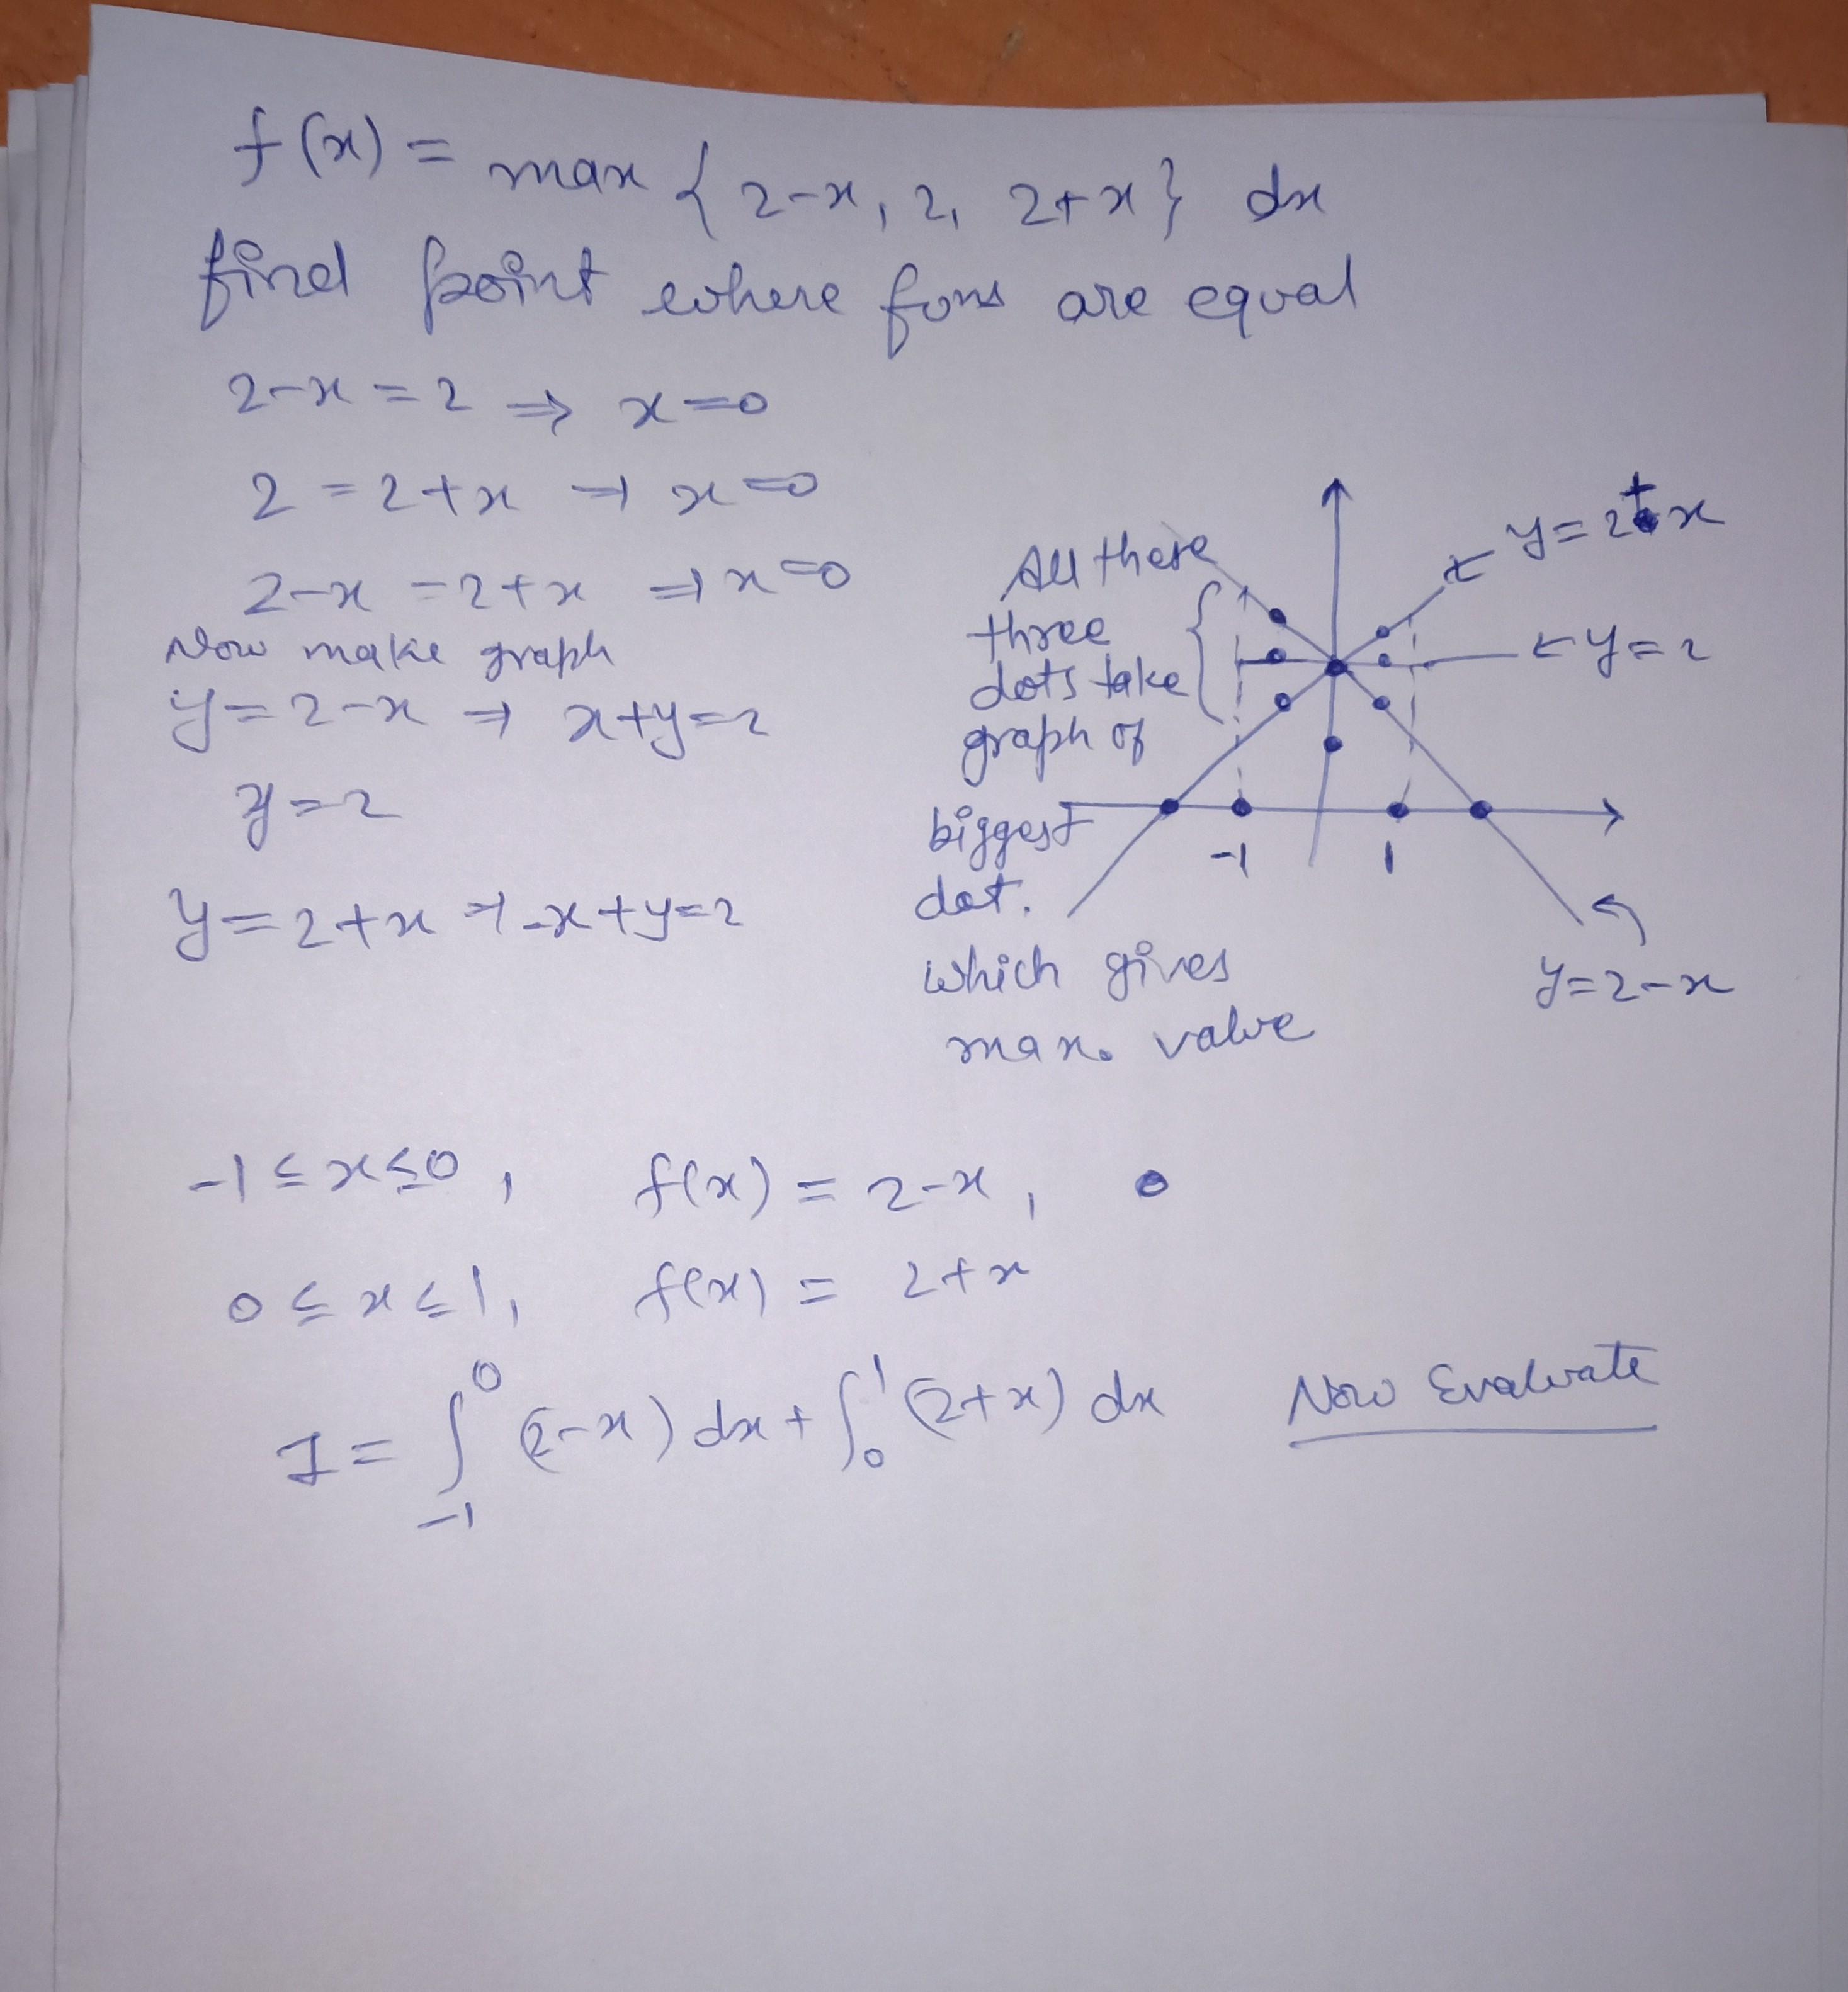 f(x) = max { 2-x, 2, 2+x} dx
find point where fons are equal
2-x = 2 ⇒ x=0
2 = 2+x ⇒ x=0
2-x = 2+x ⇒ x=0
Now make graph
y=2-x ⇒ x+y=2
y=2
y=2+x ⇒ -x+y=2
All these
three
dots take
graph of
biggest
dot.
which gives
max. value
y=2+x
y=2
-1
1
y=2-x
-1≤x≤0, f(x) = 2-x,
0≤x≤1, f(x) = 2+x
I = ∫_{-1}^{0} (2-x) dx + ∫_{0}^{1} (2+x) dx Now Evaluate